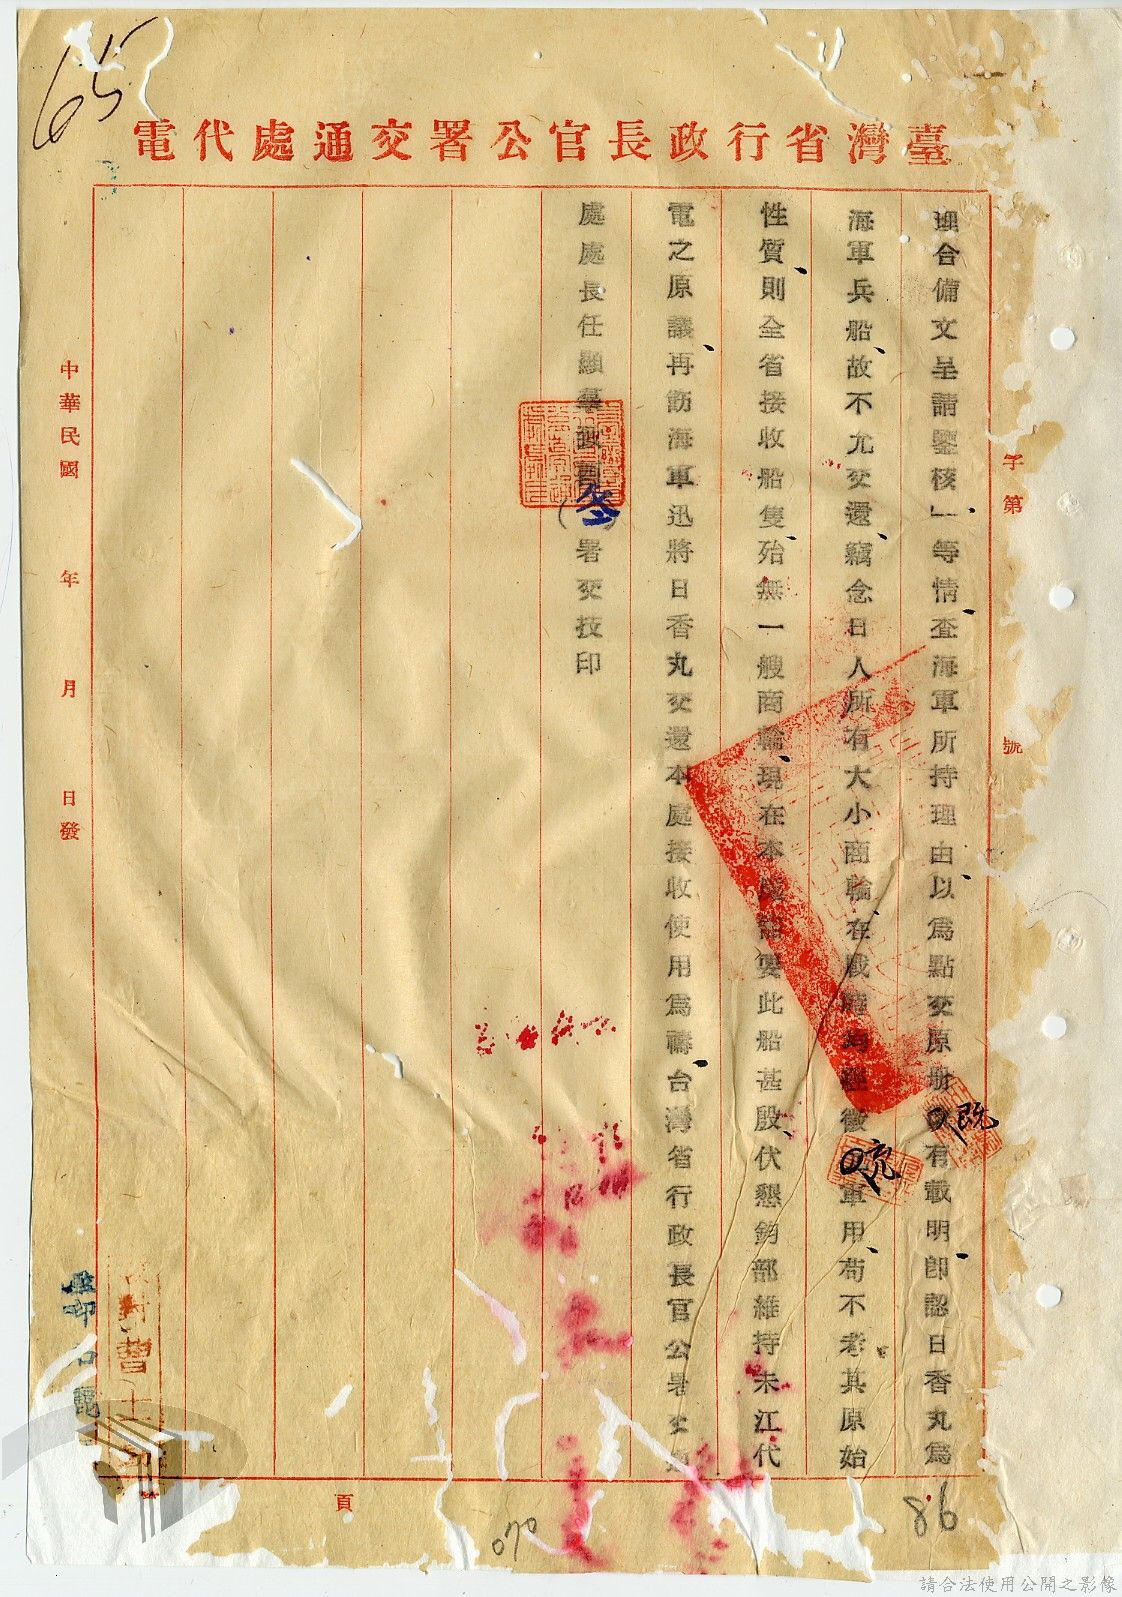 65
臺灣省行政長官公署交通處代電
字第 號
理合備文呈請鑒核」等情查海軍所持理由以為點交原册既有載明卽認日香丸為
海軍兵船故不允交還竊念日人所有大小商輪在戰時均經徵充軍用苟不考其原始
性質則全省接收船隻殆無一艘商輪現在本處需要此船甚殷伏懇鈞部維持未江代
電之原議再飭海軍迅將日香丸交還本處接收使用為禱台灣省行政長官公署交通
處處長任顯羣 (冬)署交技印
中華民國 年 月 日發
監印
曹士
頁
070
86
請合法使用公開之影像